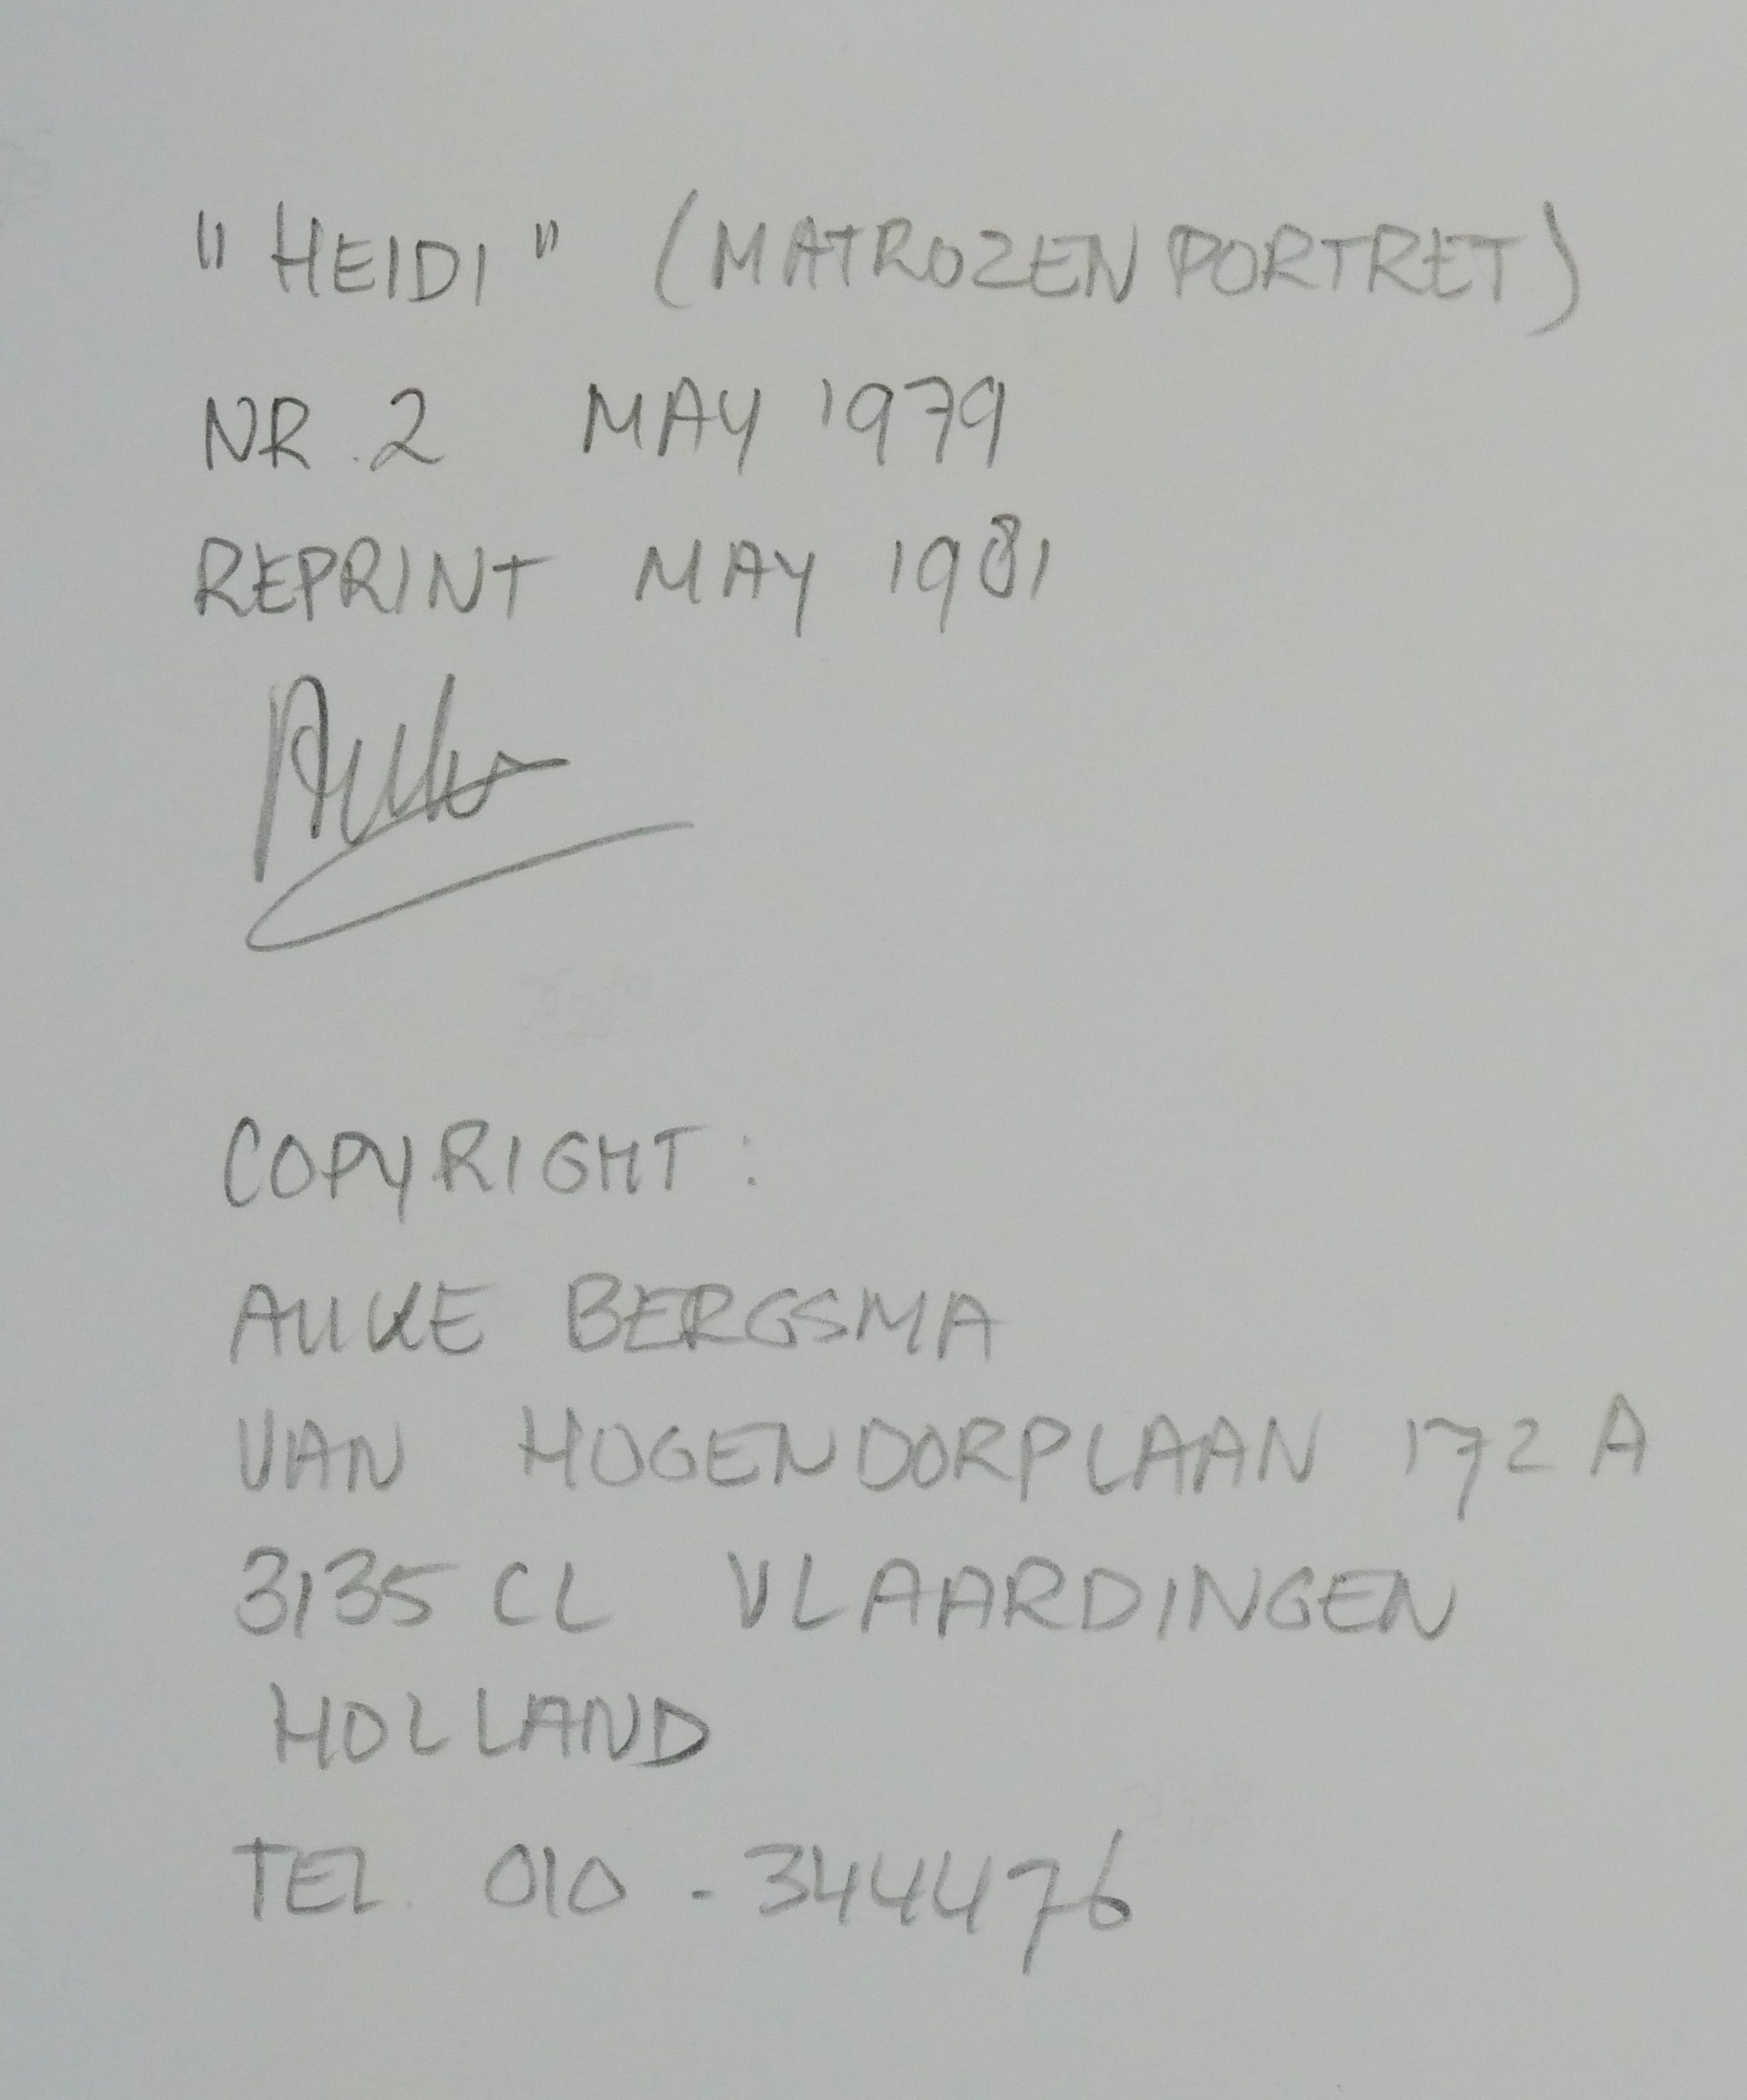 "HEIDI" (MATROZENPORTRET)
NR. 2 MAY 1979
REPRINT MAY 1981
Auke
COPYRIGHT:
AUKE BERGSMA
VAN HOGENDORPLAAN 172 A
3135 CL VLAARDINGEN
HOLLAND
TEL. 010 - 344476